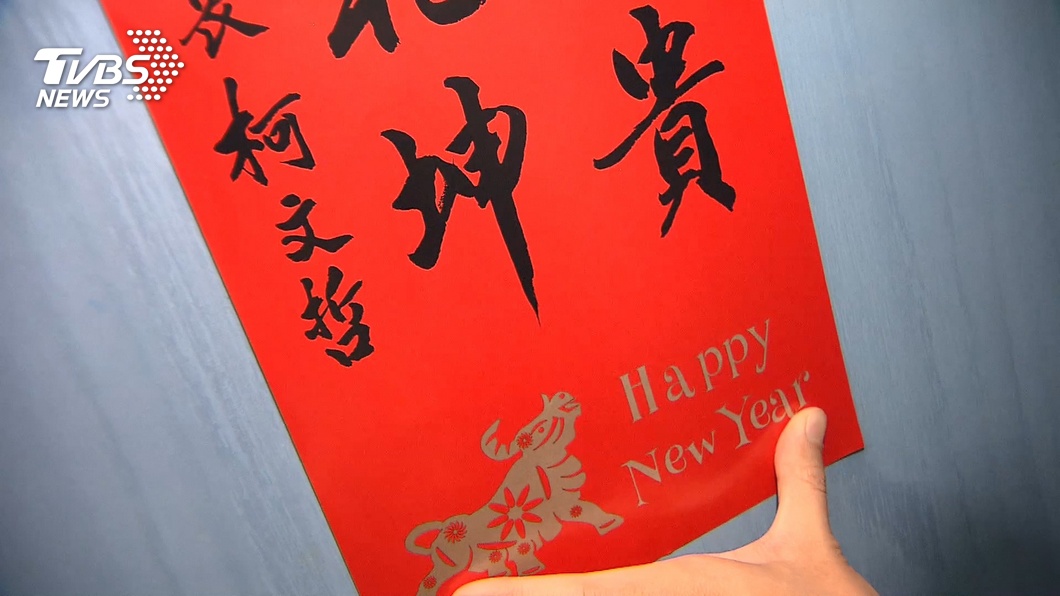 TVBS
NEWS
貴
坤
柯文哲
Happy
New Year